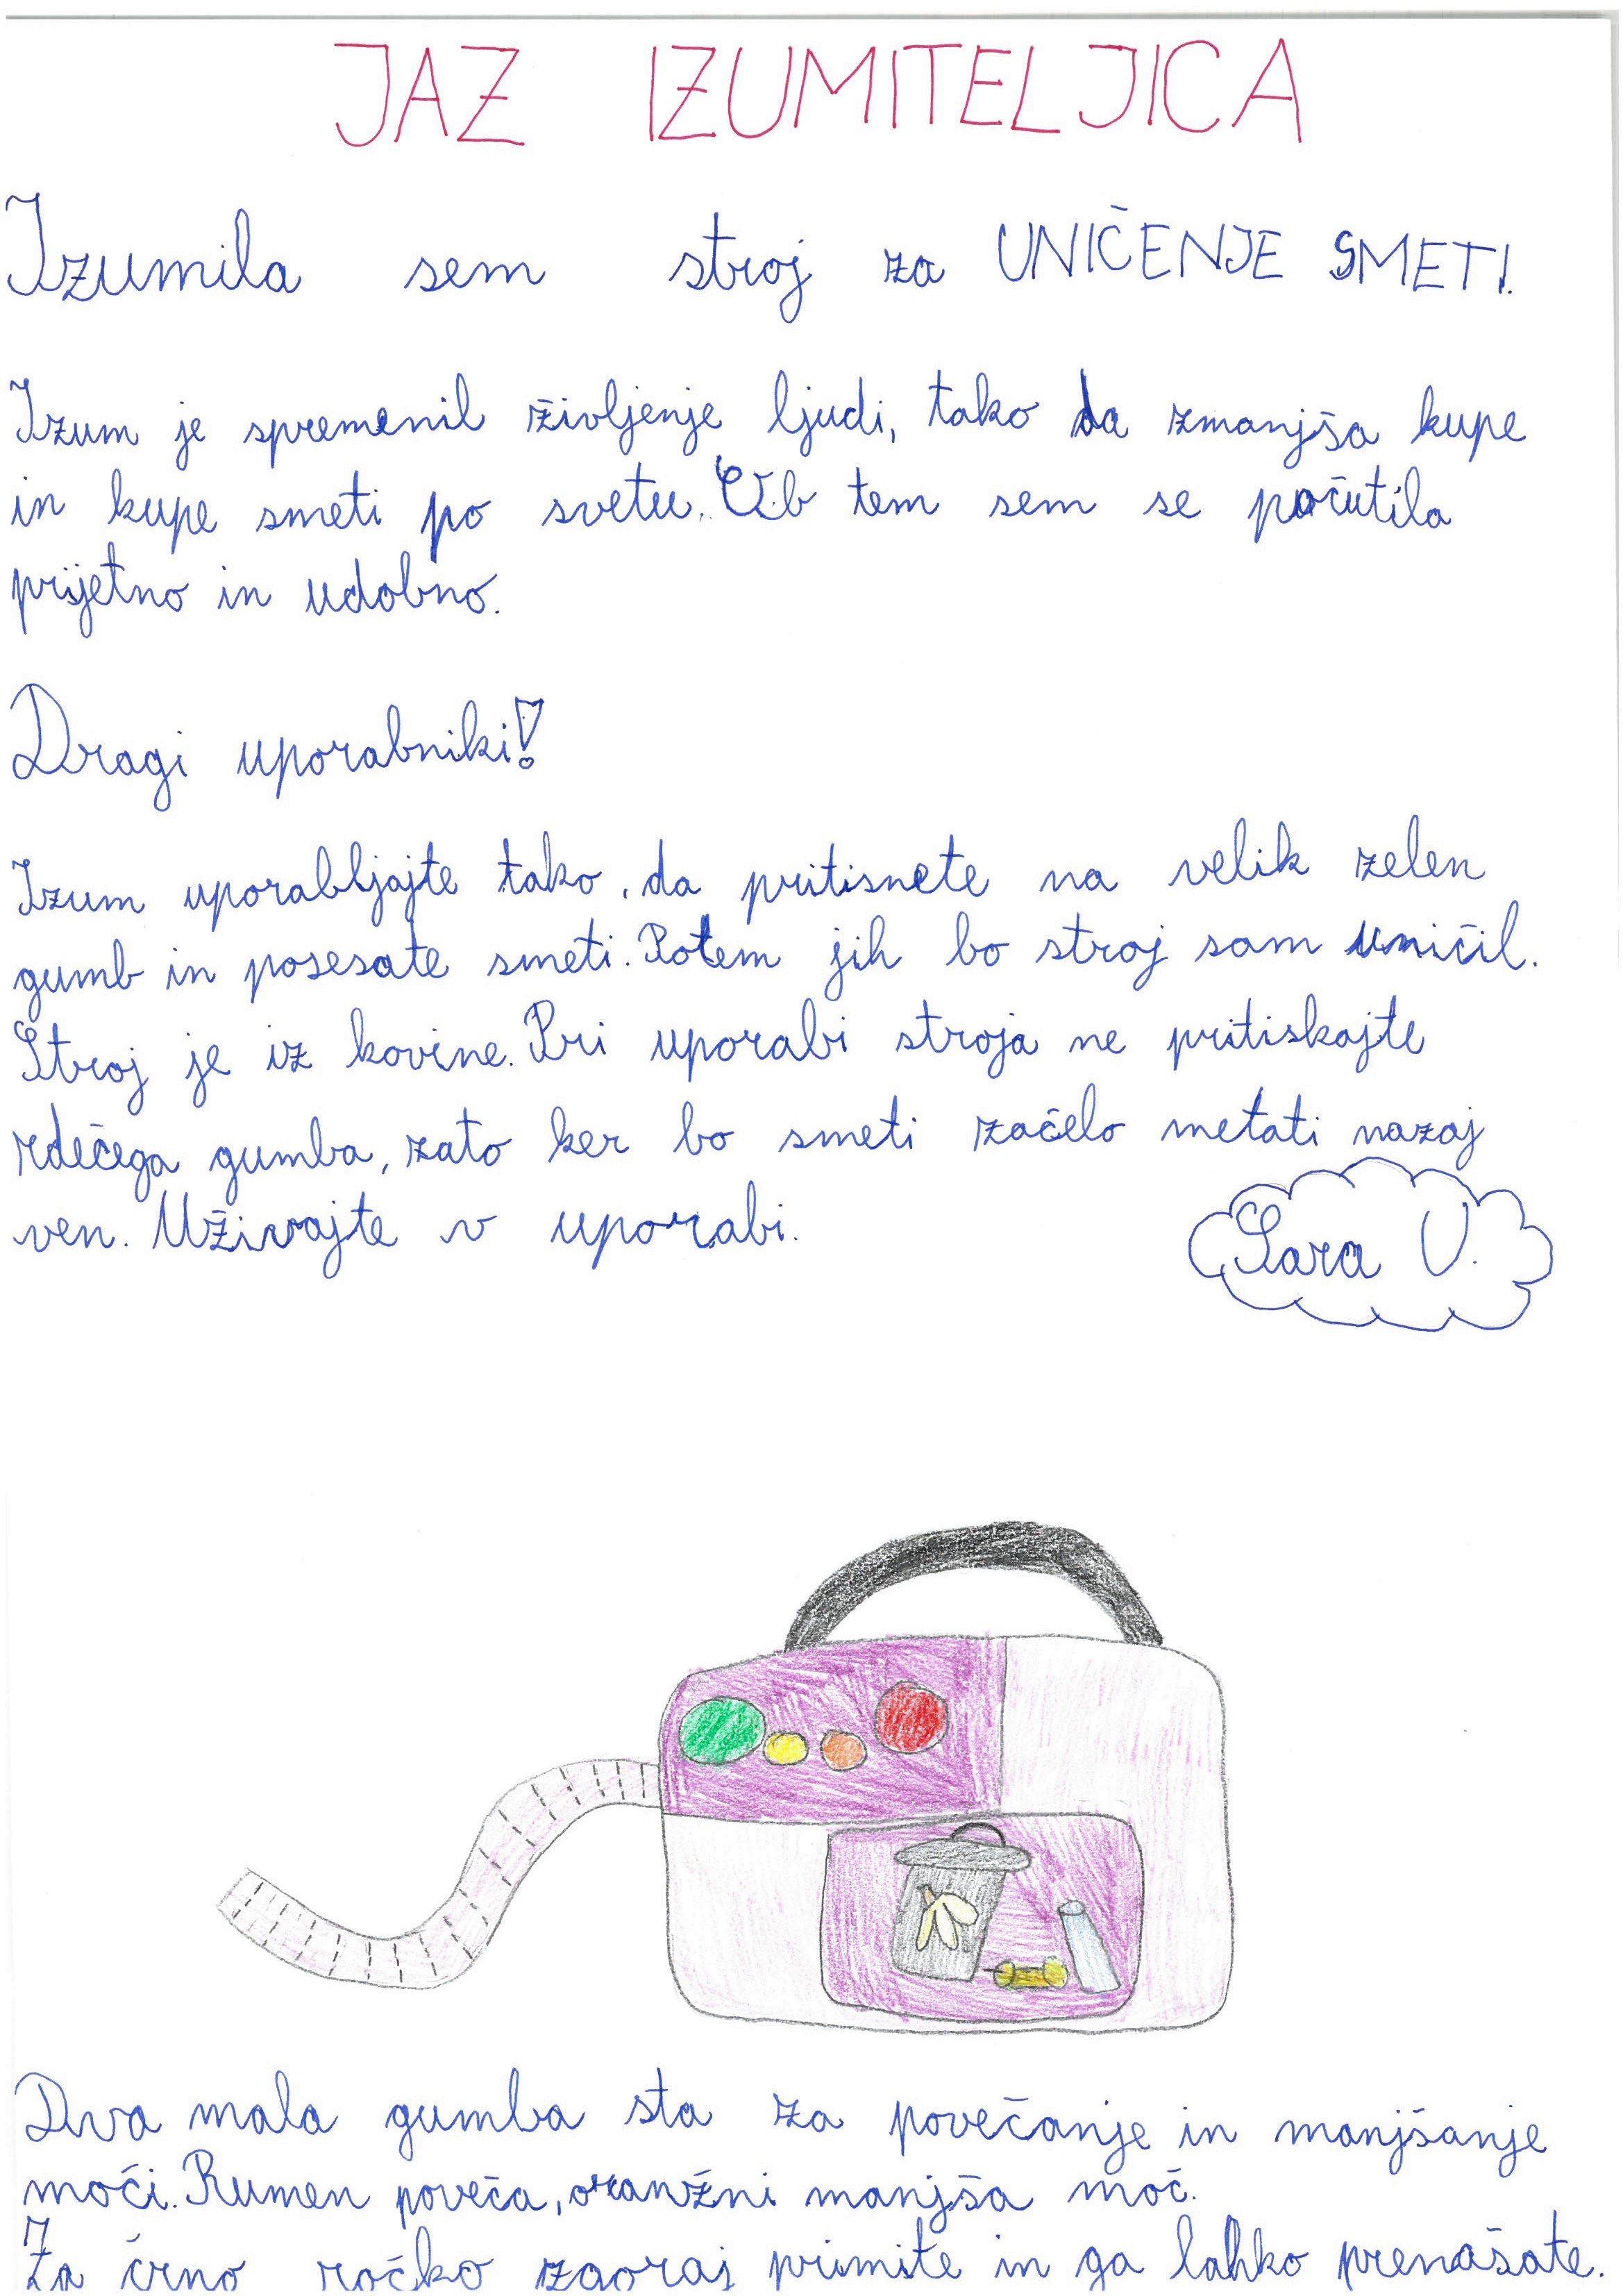 JAZ IZUMITELJICA
Izumila sem stroj za UNIČENJE SMETI.
Izum je spremenil življenje ljudi, tako da zmanjša kupe
in kupe smeti po svetu. Ob tem sem se počutila
prijetno in udobno.
Dragi uporabniki!
Izum uporabljajte tako, da pritisnete na velik zelen
gumb in posesate smeti. Potem jih bo stroj sam uničil.
Stroj je iz kovine. Pri uporabi stroja ne pritiskajte
rdečega gumba, zato ker bo smeti začelo metati nazaj
ven. Uživajte v uporabi.
Sara V.
Dva mala gumba sta za povečanje in manjšanje
moči. Rumen poveča, oranžni manjša moč.
Za črno ročko zgoraj primite in ga lahko prenašate.